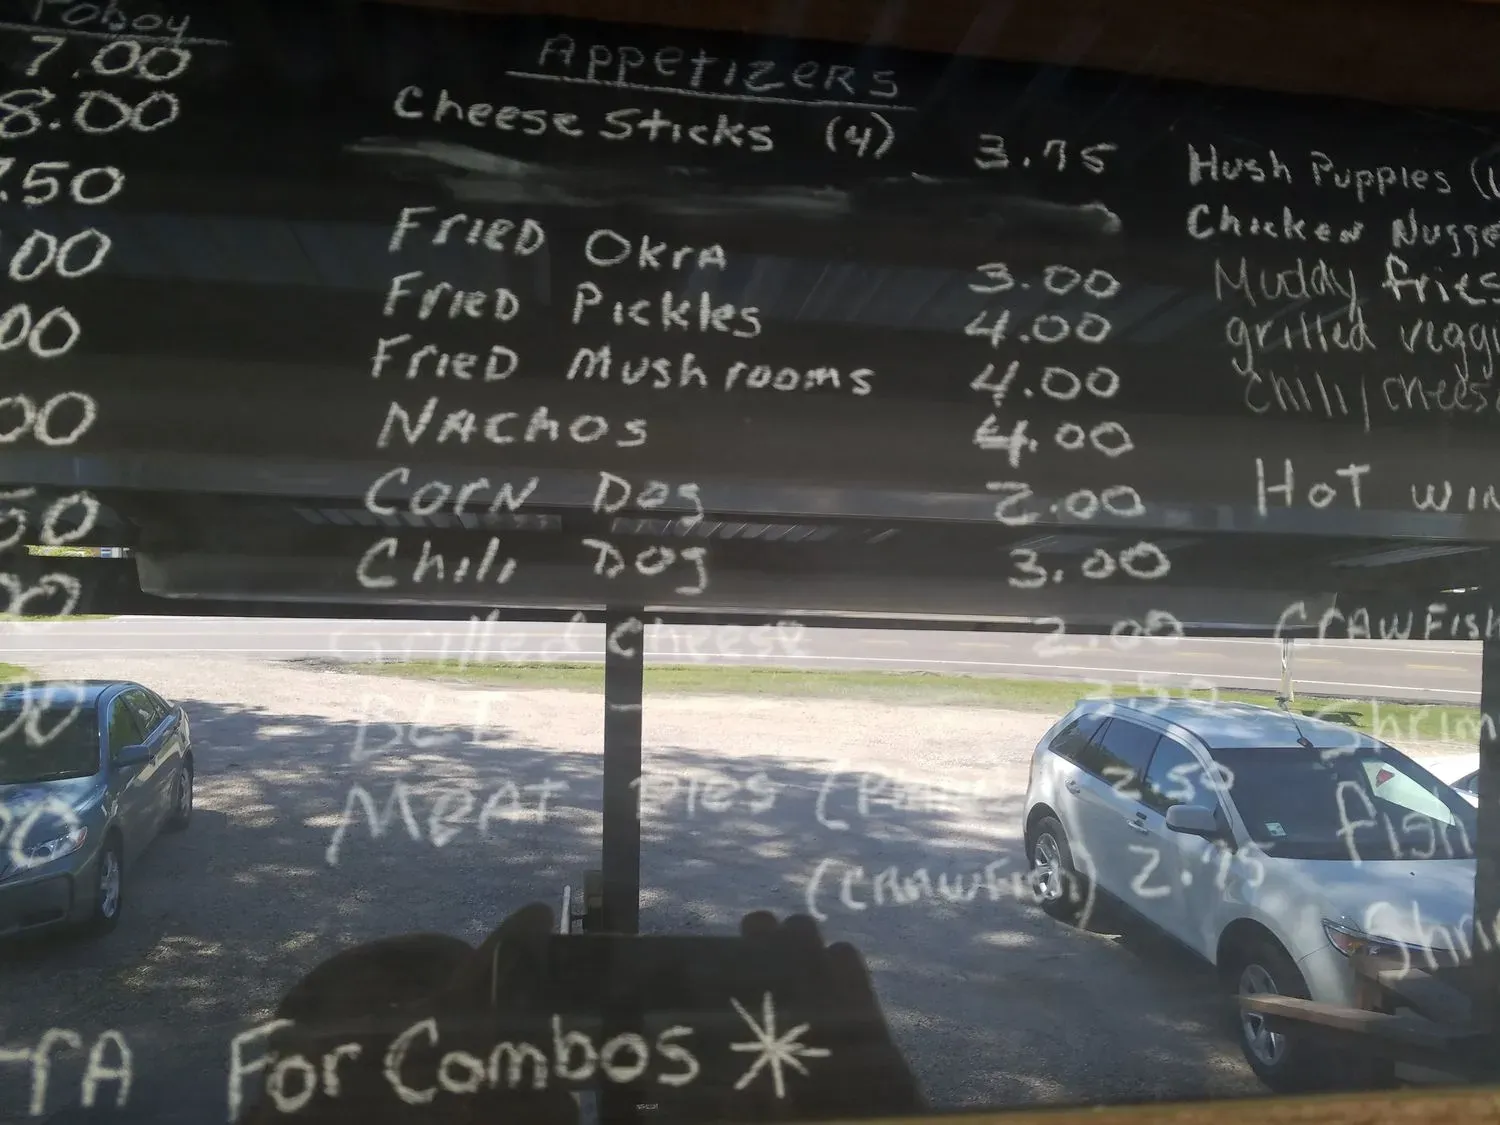 Poboy
7.00
8.00
7.50
.00
00
00
50
00
00
00
Appetizers
Cheese Sticks (4) 3.75
Fried Okra 3.00
Fried Pickles 4.00
Fried Mushrooms 4.00
Nachos 4.00
Corn Dog 2.00
Chili Dog 3.00
Grilled Cheese 2.00
BLT 3.50
Meat Pies ( 2.50
(Crawfish) 2.75
Hush Puppies (
Chicken Nugge
Muddy fries
grilled veggi
chili/cheese
Hot win
Crawfish
Shrim
fish
Shri
TA For Combos *